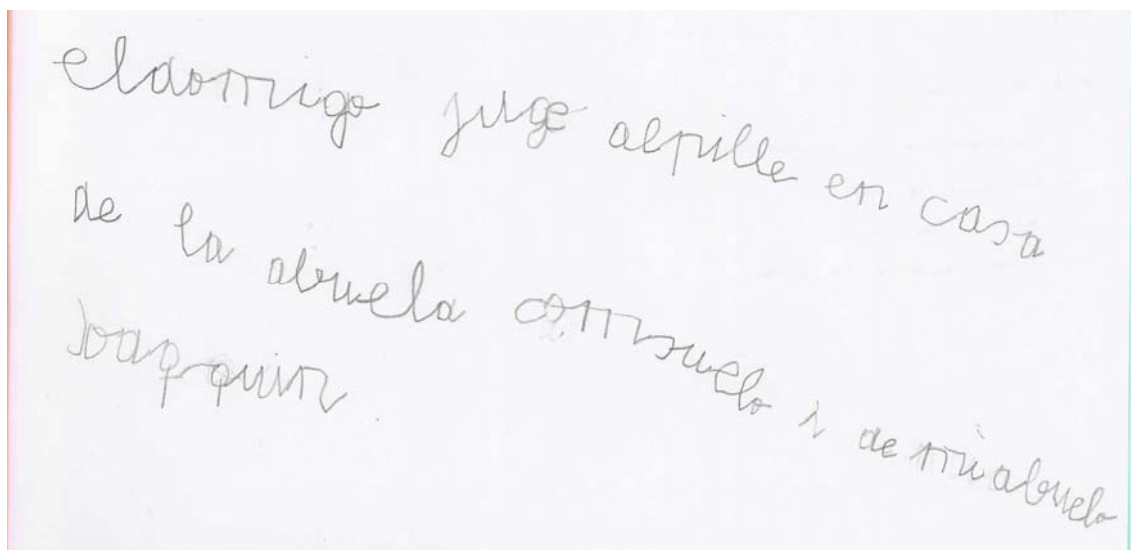 eldomigo juge alpille en casa
de la abuela comsuelo i de mi abuelo
Joaqquin.